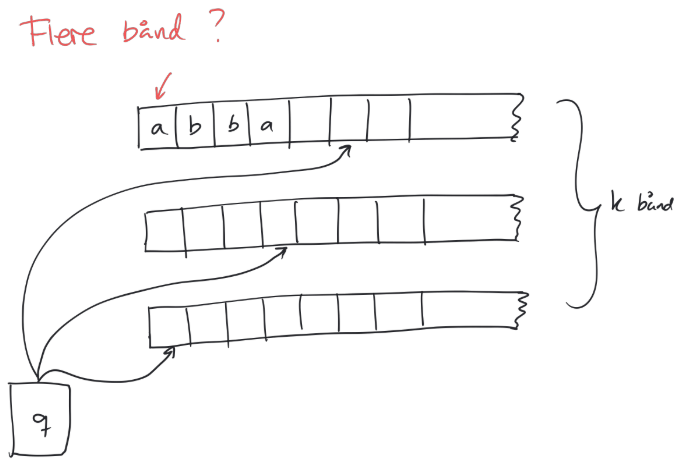 Flere bånd ?
a b b a
k bånd
q